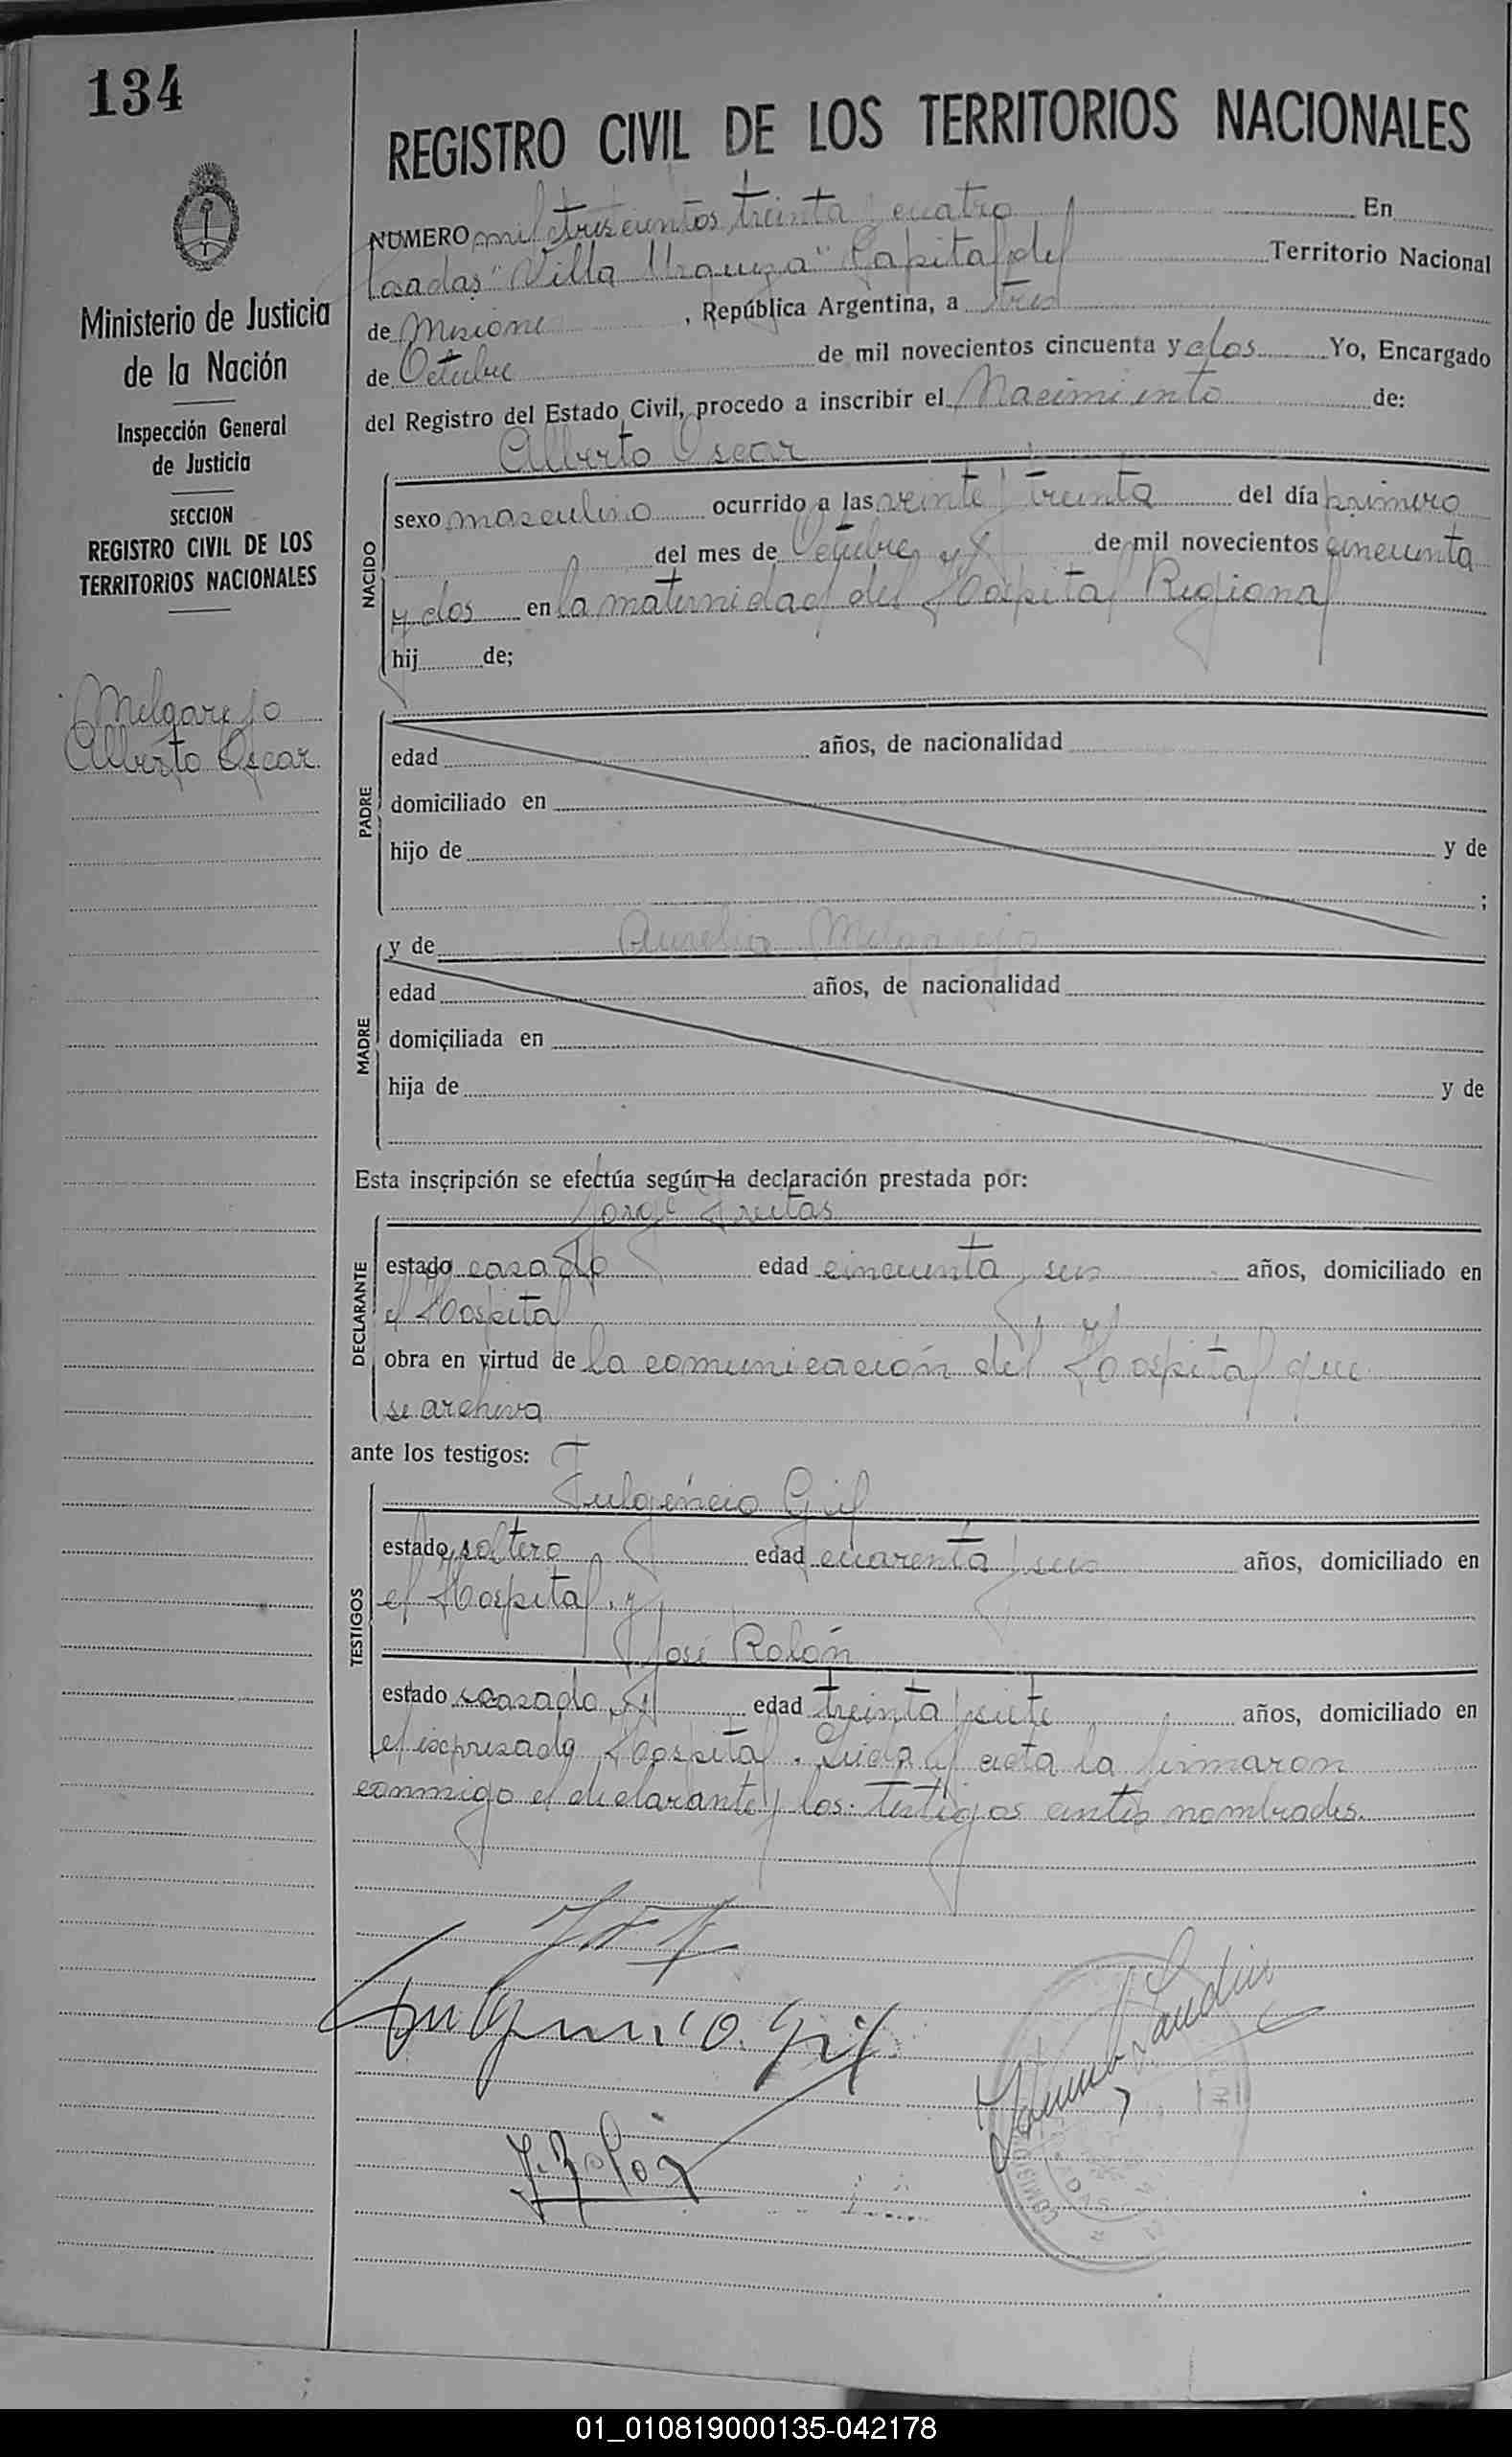 134
REGISTRO CIVIL DE LOS TERRITORIOS NACIONALES
NUMERO mil trescientos treinta y cuatro En
Posadas "Villa Urquiza" Capital del Territorio Nacional
de Misiones , República Argentina, a tres
de Octubre de mil novecientos cincuenta y dos Yo, Encargado
del Registro del Estado Civil, procedo a inscribir el Nacimiento de:
Alberto Oscar
Ministerio de Justicia
de la Nación
Inspección General
de Justicia
SECCION
REGISTRO CIVIL DE LOS
TERRITORIOS NACIONALES
Melgarejo
Alberto Oscar.
NACIDO
sexo masculino ocurrido a las veinte y treinta del día primero
del mes de Octubre de mil novecientos cincuenta
y dos en la maternidad del Hospital Regional
hij de;
PADRE
edad años, de nacionalidad
domiciliado en
hijo de y de
;
MADRE
y de Aurelia Melgarejo
edad años, de nacionalidad
domiciliada en
hija de y de
Esta inscripción se efectúa según la declaración prestada por:
DECLARANTE
Jorge Freitas
estado casado edad cincuenta y seis años, domiciliado en
el Hospital
obra en virtud de la comunicación del Hospital que
se archiva
ante los testigos:
TESTIGOS
Fulgencio Gil
estado soltero edad cuarenta y seis años, domiciliado en
el Hospital, y
José Rolón
estado casado edad treinta y siete años, domiciliado en
el expresado Hospital. Leida el acta la firmaron
conmigo el declarante y los testigos antes nombrados.
Fulgencio Gil
J. Rolón
01_010819000135-042178